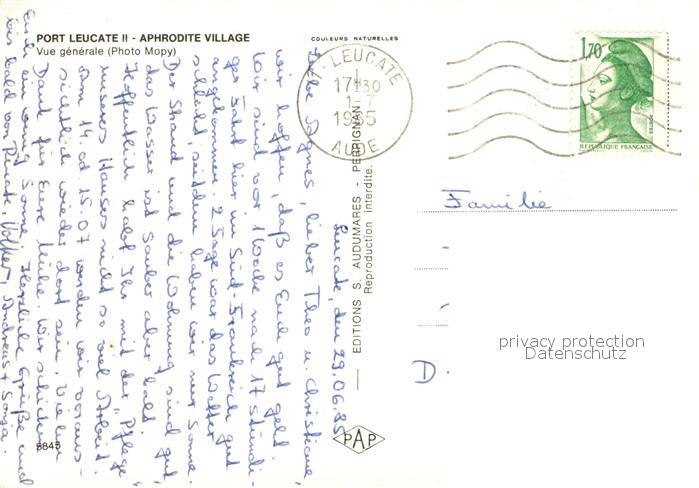 PORT LEUCATE II - APHRODITE VILLAGE
Vue générale (Photo Mopy)
COULEURS NATURELLES
LEUCATE
17H30
1-7
1985
AUDE
1,70
REPUBLIQUE FRANÇAISE
Leucate, den 29.06.85
Liebe Agnes, lieber Theo u. Christiane,
wir hoffen, daß es Euch gut geht.
Wir sind vor 1 Woche nach 17 stündi-
ger Fahrt hier in Süd-Frankreich gut
angekommen. 2 Tage war das Wetter
schlecht, seitdem haben wir nur Sonne.
Der Strand und die Wohnung sind gut
das Wasser ist sauber aber kalt.
Hoffentlich habt Ihr mit der "Pflege"
unseres Hauses nicht so viel Arbeit.
Am 14. od 15.07 werden wir voraus-
sichtlich wieder dort sein. Vielen
Dank für Eure Mühe. Wir schicken
Euch ein wenig Sonne. Herzliche Grüße und
bis bald von Renate, Volker, Andreas + Sonja.
EDITIONS S. AUDUMARES - PERPIGNAN
Reproduction interdite.
Familie
D.
privacy protection
Datenschutz
5843
PAP